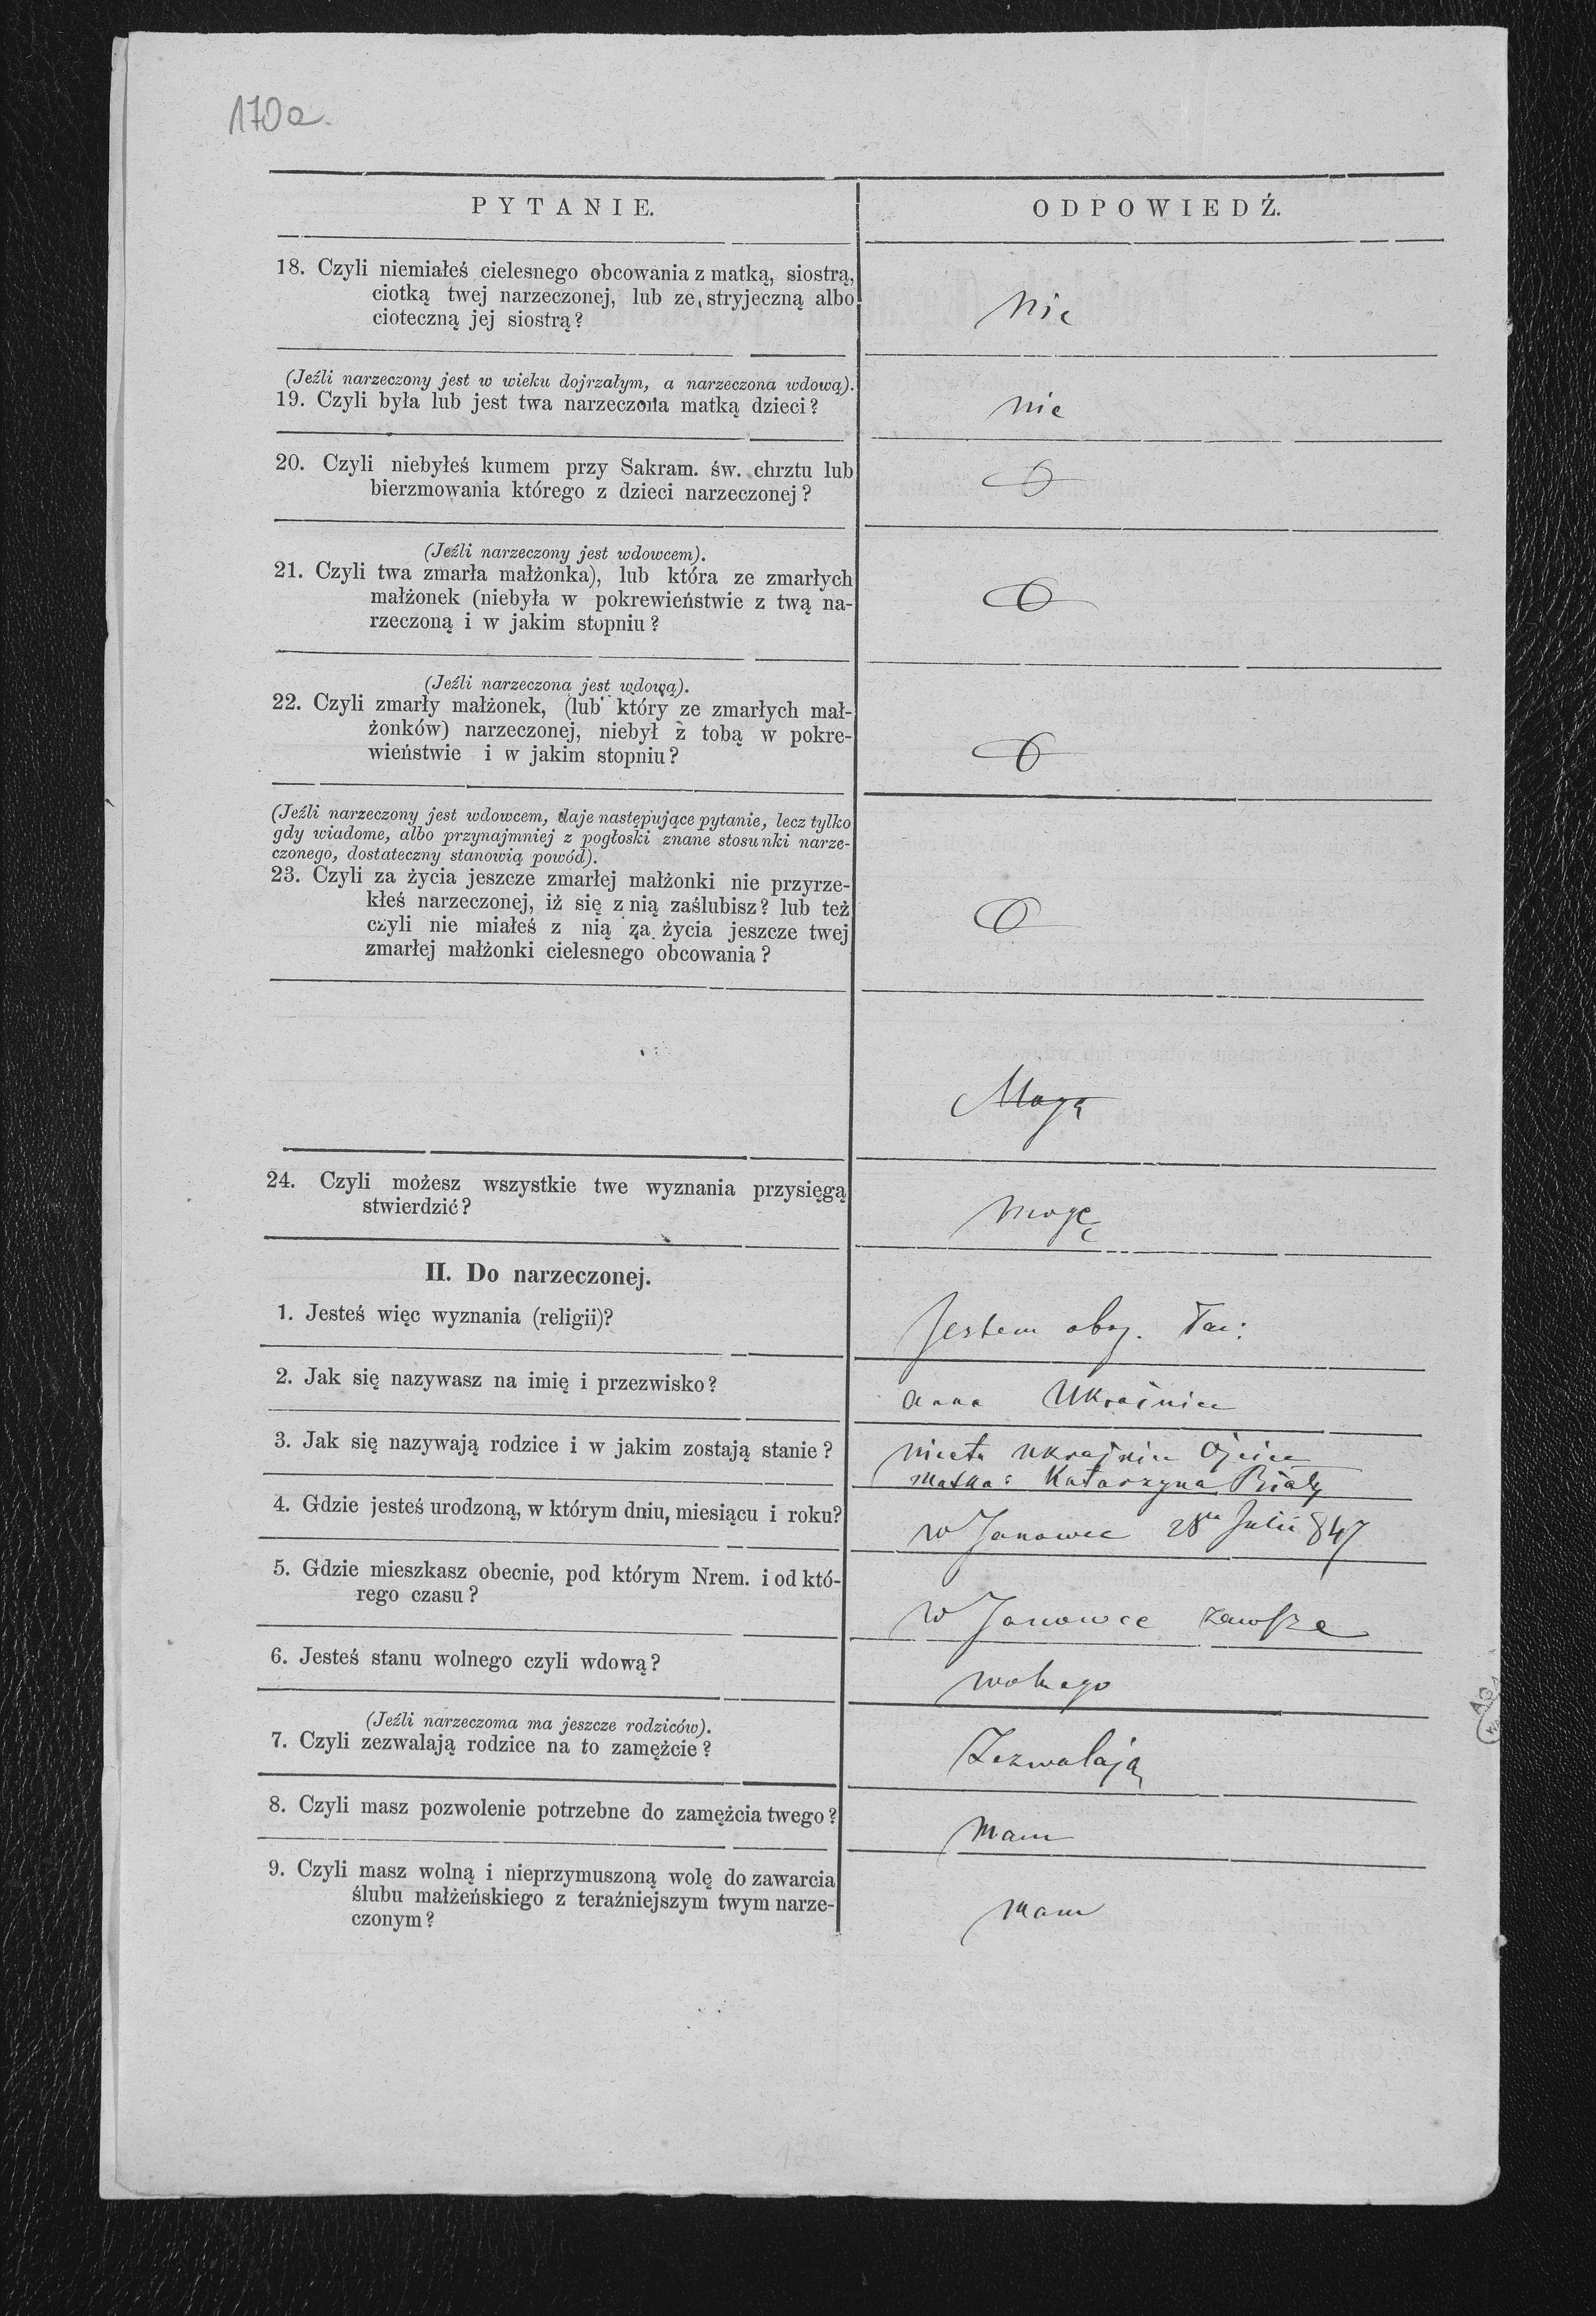 170a.
PYTANIE.
ODPOWIEDŹ.
18. Czyli niemiałeś cielesnego obcowania z matką, siostrą,
ciotką twej narzeczonej, lub ze stryjeczną albo
cioteczną jej siostrą?
nie
(Jeźli narzeczony jest w wieku dojrzałym, a narzeczona wdową).
19. Czyli była lub jest twa narzeczona matką dzieci?
nie
20. Czyli niebyłeś kumem przy Sakram. św. chrztu lub
bierzmowania którego z dzieci narzeczonej?
(Jeźli narzeczony jest wdowcem).
21. Czyli twa zmarła małżonka), lub która ze zmarłych
małżonek (niebyła w pokrewieństwie z twą na-
rzeczoną i w jakim stopniu?
(Jeźli narzeczona jest wdową).
22. Czyli zmarły małżonek, (lub który ze zmarłych mał-
żonków) narzeczonej, niebył z tobą w pokre-
wieństwie i w jakim stopniu?
(Jeźli narzeczony jest wdowcem, daje następujące pytanie, lecz tylko
gdy wiadome, albo przynajmniej z pogłoski znane stosunki narze-
czonego, dostateczny stanowią powód).
23. Czyli za życia jeszcze zmarłej małżonki nie przyrze-
kłeś narzeczonej, iż się z nią zaślubisz? lub też
czyli nie miałeś z nią za życia jeszcze twej
zmarłej małżonki cielesnego obcowania?
24. Czyli możesz wszystkie twe wyznania przysięgą
stwierdzić?
mogę
II. Do narzeczonej.
1. Jesteś więc wyznania (religii)?
Jestem obrz. łac:
2. Jak się nazywasz na imię i przezwisko?
Anna Ukrainiec
3. Jak się nazywają rodzice i w jakim zostają stanie?
Ojciec
Matka: Katarzyna Biały
4. Gdzie jesteś urodzoną, w którym dniu, miesiącu i roku?
w Janowce 28 Julii 847
5. Gdzie mieszkasz obecnie, pod którym Nrem. i od któ-
rego czasu?
w Janowce zawsze
6. Jesteś stanu wolnego czyli wdową?
wolnego
(Jeźli narzeczoma ma jeszcze rodziców).
7. Czyli zezwalają rodzice na to zamężcie?
Zezwalają
8. Czyli masz pozwolenie potrzebne do zamężcia twego?
mam
9. Czyli masz wolną i nieprzymuszoną wolę do zawarcia
ślubu małżeńskiego z teraźniejszym twym narze-
czonym?
mam